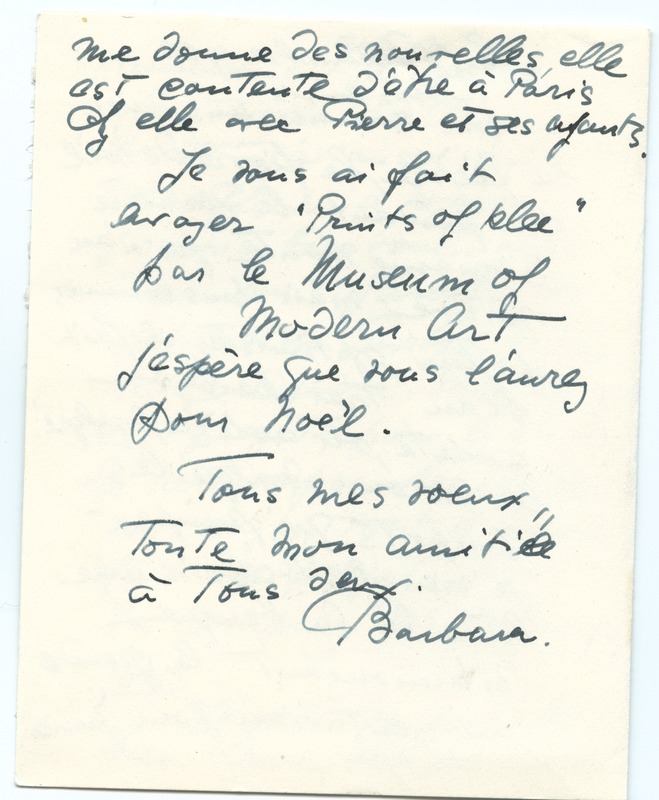 me donne des nouvelles, elle
est contente d'être à Paris
elle avec Pierre et ses enfants.
Je vous ai fait
envoyer "Prints of Klee"
par le Museum of
Modern Art
j'espère que vous l'aurez
pour Noël.
Tous mes voeux,
Toute mon amitiée
à Tous deux.
Barbara.